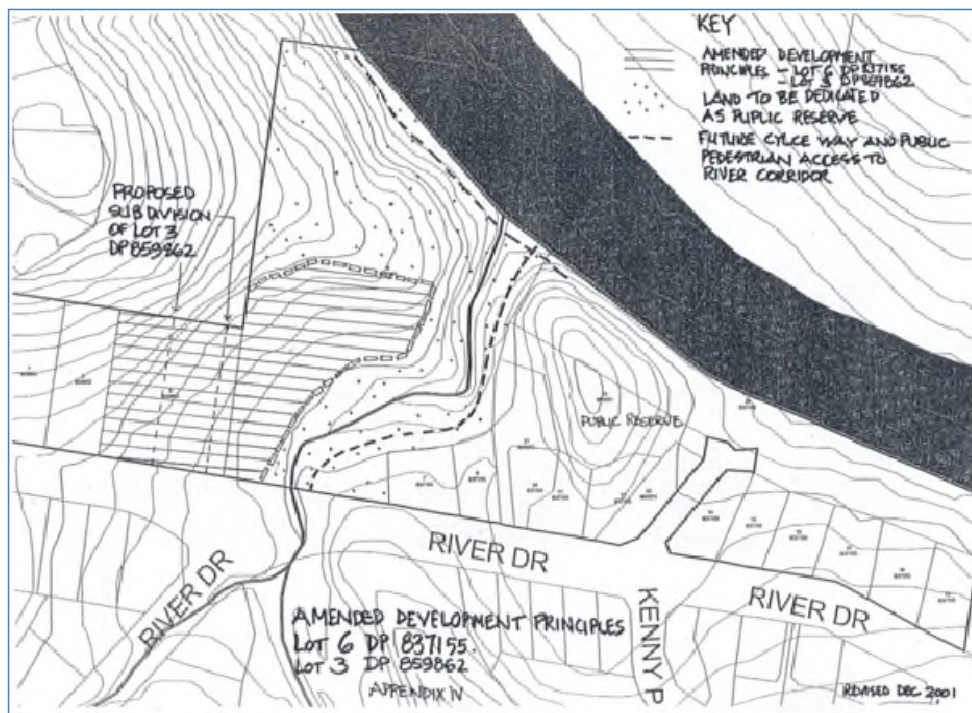 KEY
AMENDED DEVELOPMENT
PRINCIPLES - LOT 6 DP 837155
- LOT 3 DP 859862
LAND TO BE DEDICATED
AS PUBLIC RESERVE
FUTURE CYLCE WAY AND PUBLIC
PEDESTRIAN ACCESS TO
RIVER CORRIDOR
PROPOSED
SUBDIVISION
OF LOT 3
DP 859862
PUBLIC RESERVE
RIVER DR
RIVER DR
RIVER DR
KENNY P
AMENDED DEVELOPMENT PRINCIPLES
LOT 6 DP 837155.
LOT 3 DP 859862
APPENDIX IV
REVISED DEC 2001